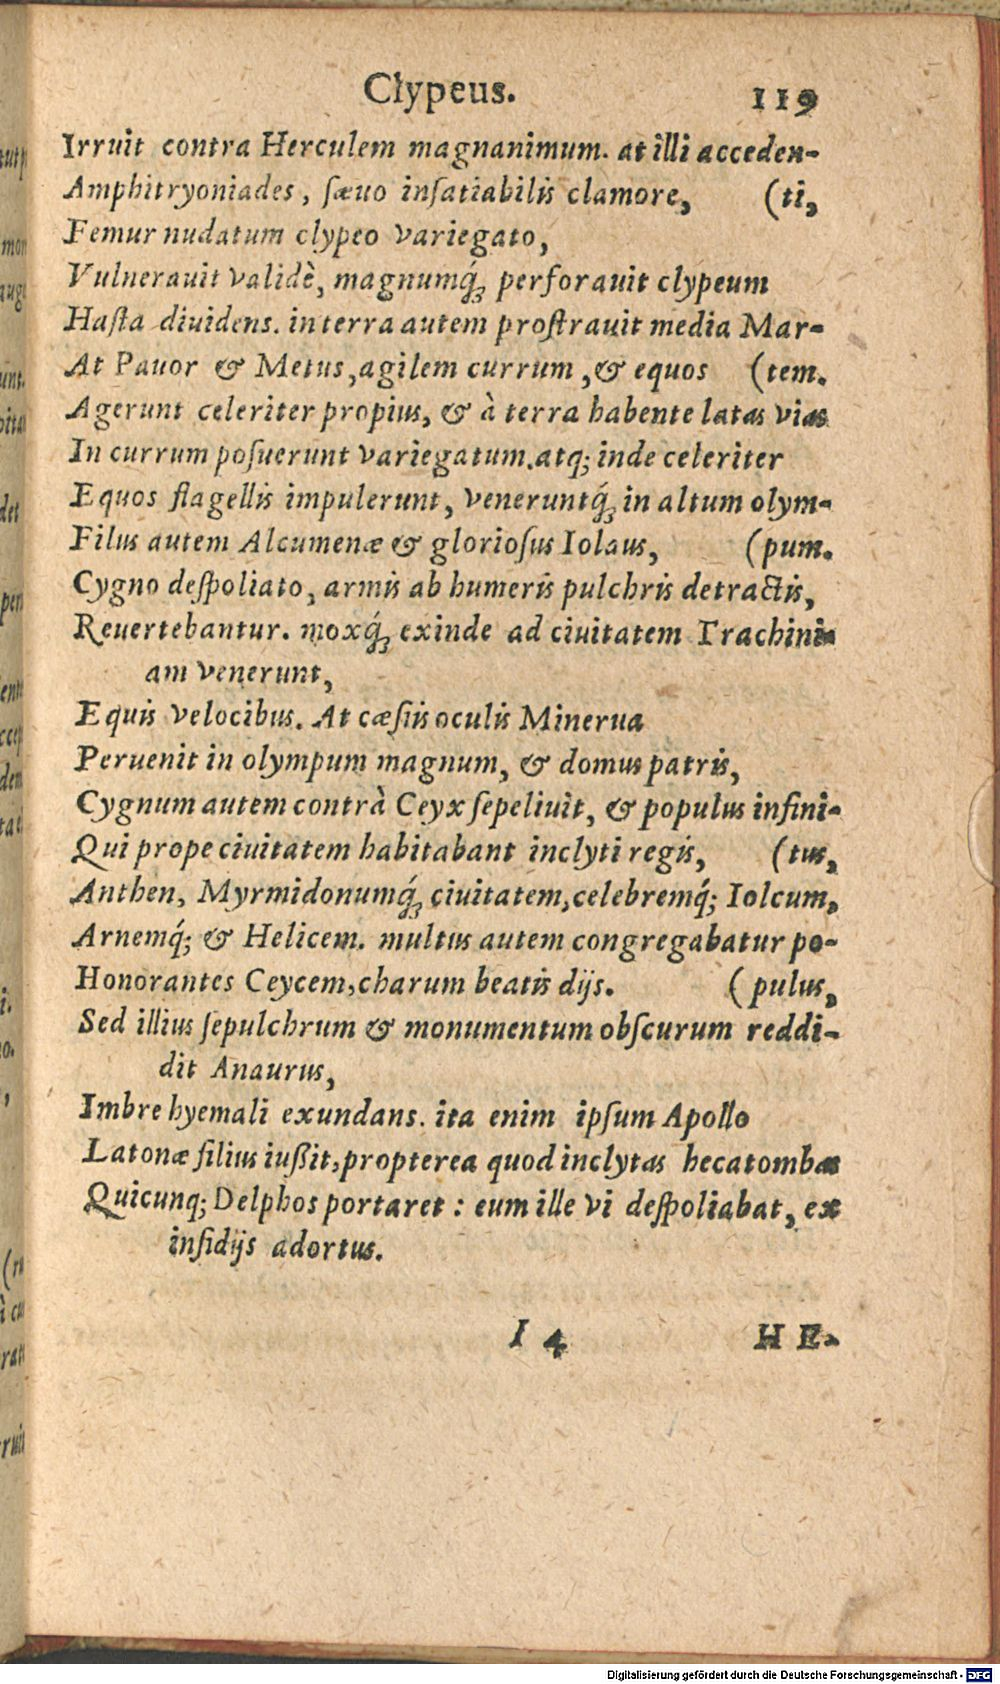 Clypeus. 119
Irruit contra Herculem magnanimum. at illi acceden-
Amphitryoniades, sæuo insatiabilis clamore, (ti,
Femur nudatum clypeo variegato,
Vulnerauit validè, magnumq́ꝫ perforauit clypeum
Hasta diuidens. in terra autem prostrauit media Mar-
At Pauor & Metus, agilem currum, & equos (tem.
Agerunt celeriter propius, & à terra habente latas vias
In currum posuerunt variegatum. atq; inde celeriter
Equos flagellis impulerunt, veneruntq́ꝫ in altum olym-
Filius autem Alcumenæ & gloriosus Iolaus, (pum.
Cygno despoliato, armis ab humeris pulchris detractis,
Reuertebantur. moxq́ꝫ exinde ad ciuitatem Trachini-
am venerunt,
Equis velocibus. At cæsiis oculis Minerua
Peruenit in olympum magnum, & domus patris,
Cygnum autem contrà Ceyx sepeliuit, & populus infini-
Qui prope ciuitatem habitabant inclyti regis, (tus,
Anthen, Myrmidonumq́ꝫ ciuitatem, celebremq́; Iolcum,
Arnemq́; & Helicem. multus autem congregabatur po-
Honorantes Ceycem, charum beatis dijs. (pulus,
Sed illius sepulchrum & monumentum obscurum reddi-
dit Anaurus,
Imbre hyemali exundans. ita enim ipsum Apollo
Latonæ filius iußit, propterea quod inclytas hecatombas
Quicunq; Delphos portaret : eum ille vi despoliabat, ex
insidijs adortus.
I 4 HE-
Digitalisierung gefördert durch die Deutsche Forschungsgemeinschaft - DFG